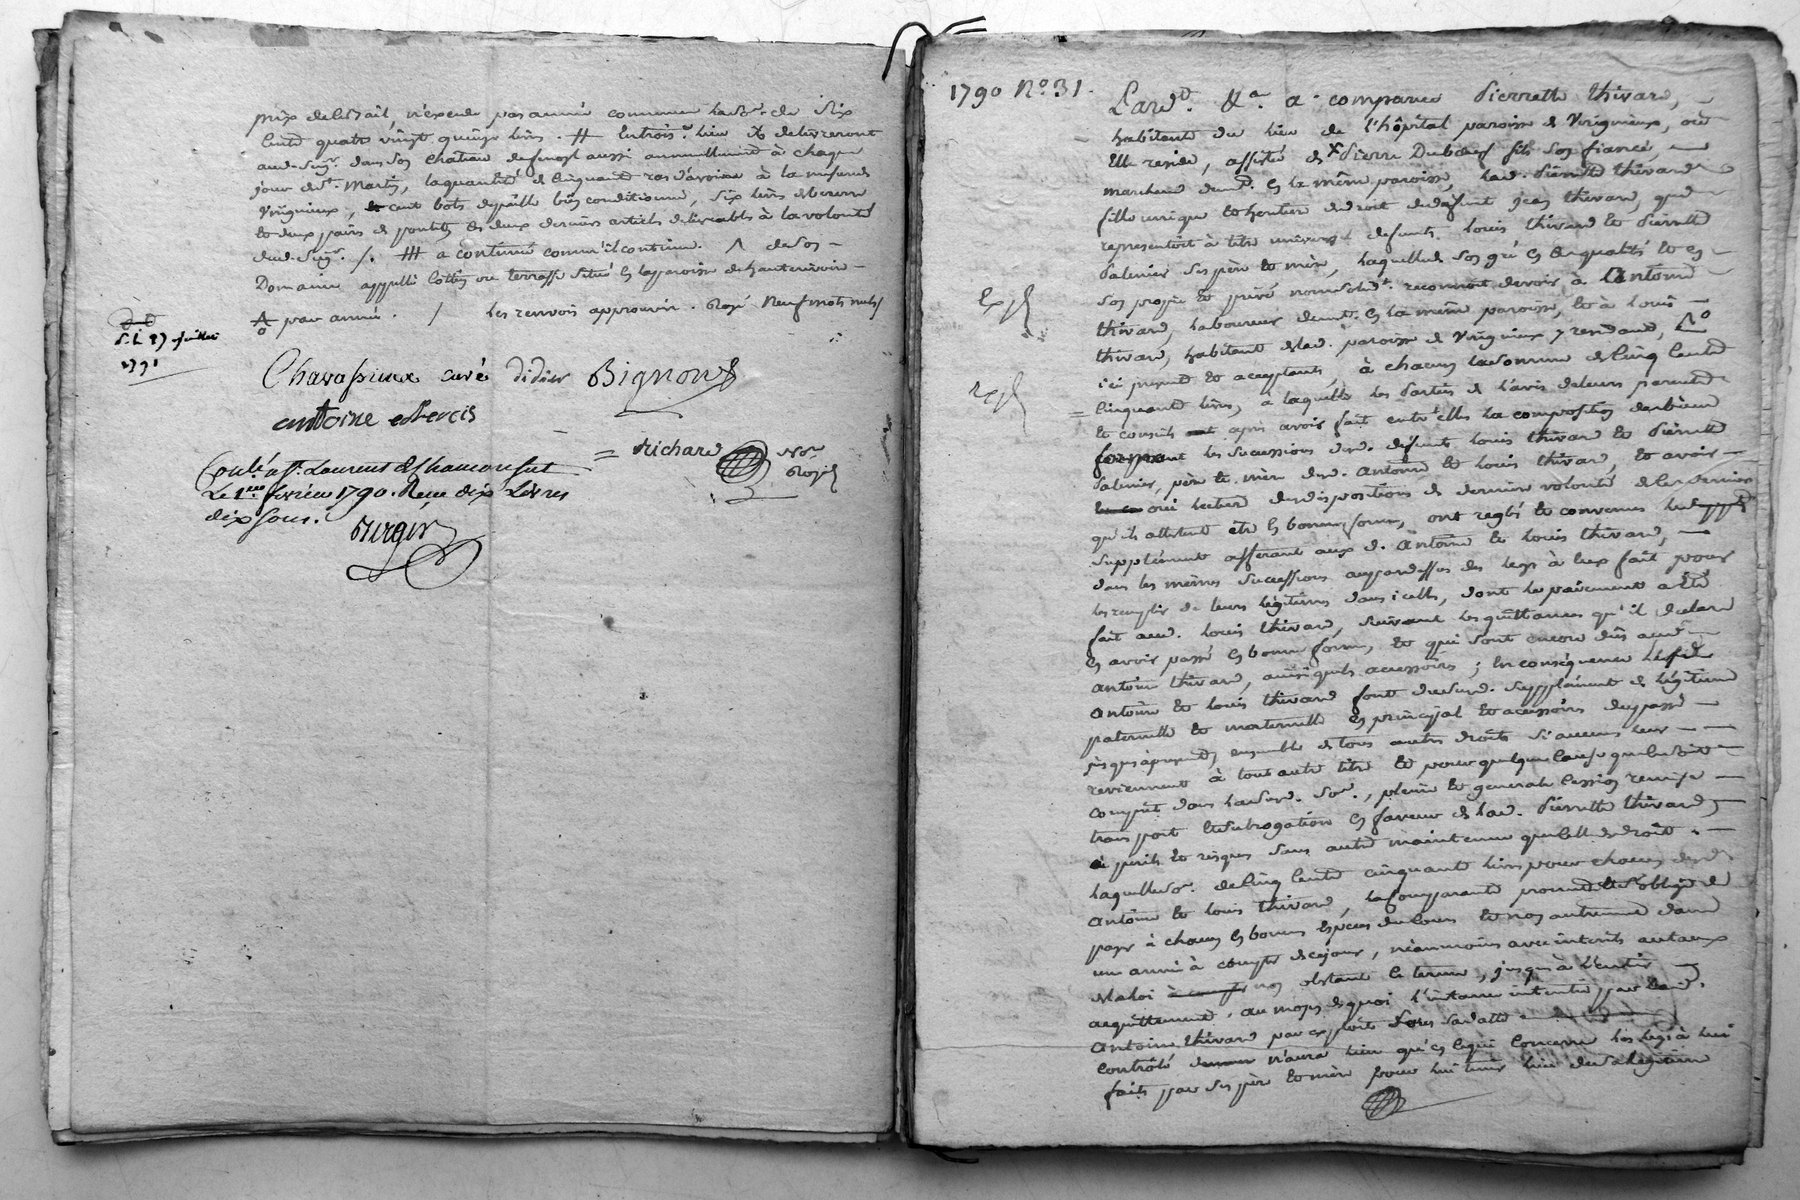 prix de bétail, n'excede par année commune la so.e de six
Cents quatre vingt quinze livres. # Entrois.e lieu ils delivreront
aud. Sieg.r dans son chateau de senost aussi annuellement à chaque
jour de St. Martin, la quantité de Cinquante ras d'avoine à la mesure de
Virigneux, cent bots de paille bien conditionné, six livres de beurre
et deux pairs de poulets les deux derniers articles delivrables à la volonté
dud. Sieg.r /. ## a continué comm'il continue. ^ de Son -
Domaine appellé Cottin ou terrasse situé en la paroisse de hauterivoire -
par année. / les renvois approuvés. Royé Neuf mots nuls
S. L. 27 Juillet
1791
Chavassieux curé didier Bignon
antoine
Richard No.re Royal
Cont.é à St. Laurent de Chamousset
Le 1er fevrier 1790. Reçu dix Livres
dix sous.
Burgin
1790 No. 31.
Pard.t &a. a comparu Pierrette thivard,
habitante du lieu de l'hôpital paroisse de Virigneux, où
Elle reside, assistée de Pierre Duboeuf fils son fiancé,
marchand demt. en la même paroisse, lad. Pierrette thivard
fille unique et heritiere de droit de defunt jean thivard, qui
representoit à titre universel defunts Louis thivard et Pierrette
Palmier ses père et mère, laquelle de son gré en lesqualités et en
son propre et privé nom solidt. reconnoit devoir à Antoine
thivard, laboureur demt. en la même paroisse, et à Louis
thivard, habitant de lad. paroisse de Virigneux y residant,
ici present et acceptants, à chacun la somme de Cinq Cents
Cinquante livres, à laquelle les Parties de l'avis de leurs parents
et conseils après avoir fait entr'elles la composition des biens
les successions desd. defunts Louis thivard et Pierrette
Palmier, père et mère desd. Antoine et Louis thivard, et avoir
oui lecture des dispositions de derniere volonté de ces derniers
qu'ils attestent être en bonne forme, ont reglé et convenus
supplément afférant aux d. Antoine et Louis thivard,
dans les mêmes Successions aupardessus des legs à eux fait pour
les remplir de leurs légitimes dans icelles, dont le paiement a été
fait aud. Louis thivard, suivant les quittances qu'il declare
en avoir passé en bonne forme, et qui sont encore dus aud.
Antoine thivard, ainsi que les accessoires ; en conséquence lesd.
Antoine et Louis thivard font dusurd. Supplément de légitime
paternelle et maternelle en principal et accessoires du passé
jusqu'à present, ensemble de tous autres droits si aucuns leur
reviennent à tout autre titre et pour quelque cause que ce soit
compris dans lasusd. so.e, pleine et generale Cession remise
transport et subrogation en faveur de lad. Pierrette thivard,
à perils et risques sans autre maintenue que celle de droit.
laquelle so.e de Cinq Cents cinquante livres pour chacun desd.
Antoine et Louis thivard, la Comparante promet et s'oblige de
payer à chacun en bonnes Espèces de Cours et non autrement dans
un année à compter de cejour, néanmoins avec interêts au taux
de la loi non obstant le terme, jusqu'à l'entier
acquittement. au moyen de quoi l'instance intentée par led.
Antoine thivard par exploit
contrôlé n'aura lieu qu'en cequi concerne les legs à lui
faits par ses père et mère pour lui tenir lieu de sa légitime